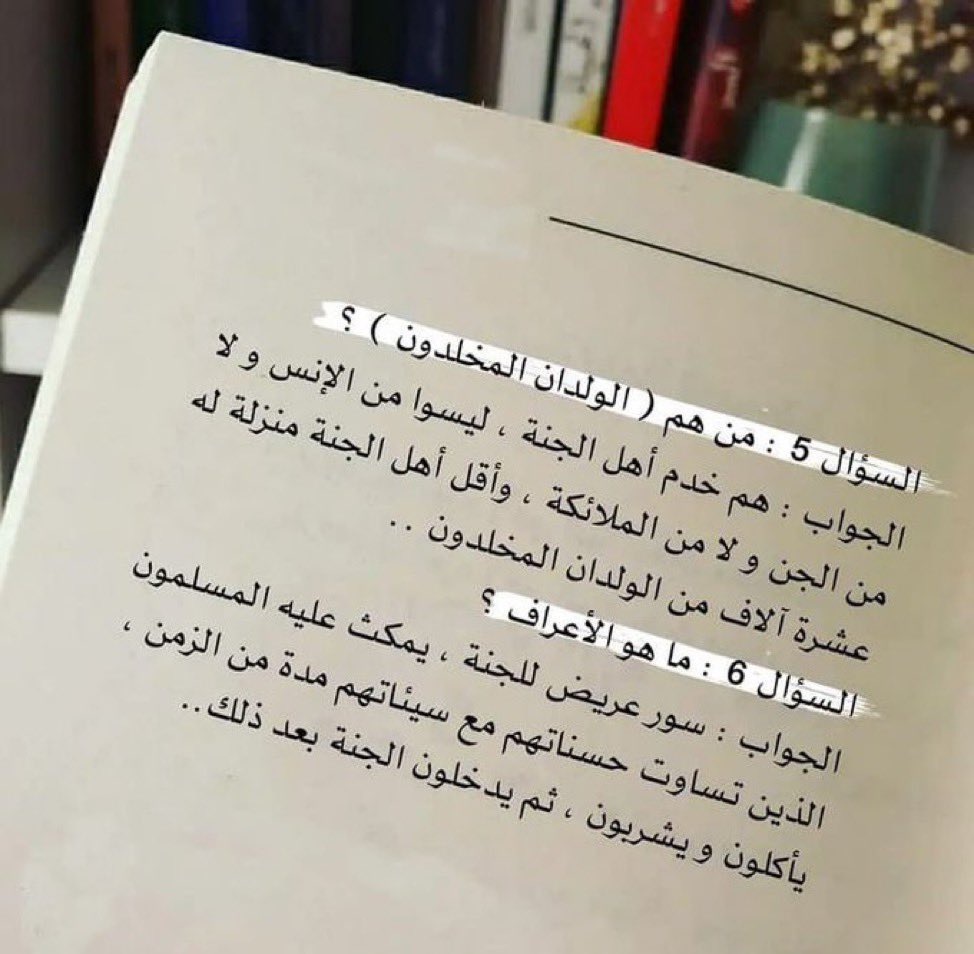 السؤال 5 : من هم ( الولدان المخلدون ) ؟
الجواب : هم خدم أهل الجنة ، ليسوا من الإنس و لا
من الجن و لا من الملائكة ، وأقل أهل الجنة منزلة له
عشرة آلاف من الولدان المخلدون ..
السؤال 6 : ما هو الأعراف ؟
الجواب : سور عريض للجنة ، يمكث عليه المسلمون
الذين تساوت حسناتهم مع سيئاتهم مدة من الزمن ،
يأكلون و يشربون ، ثم يدخلون الجنة بعد ذلك..